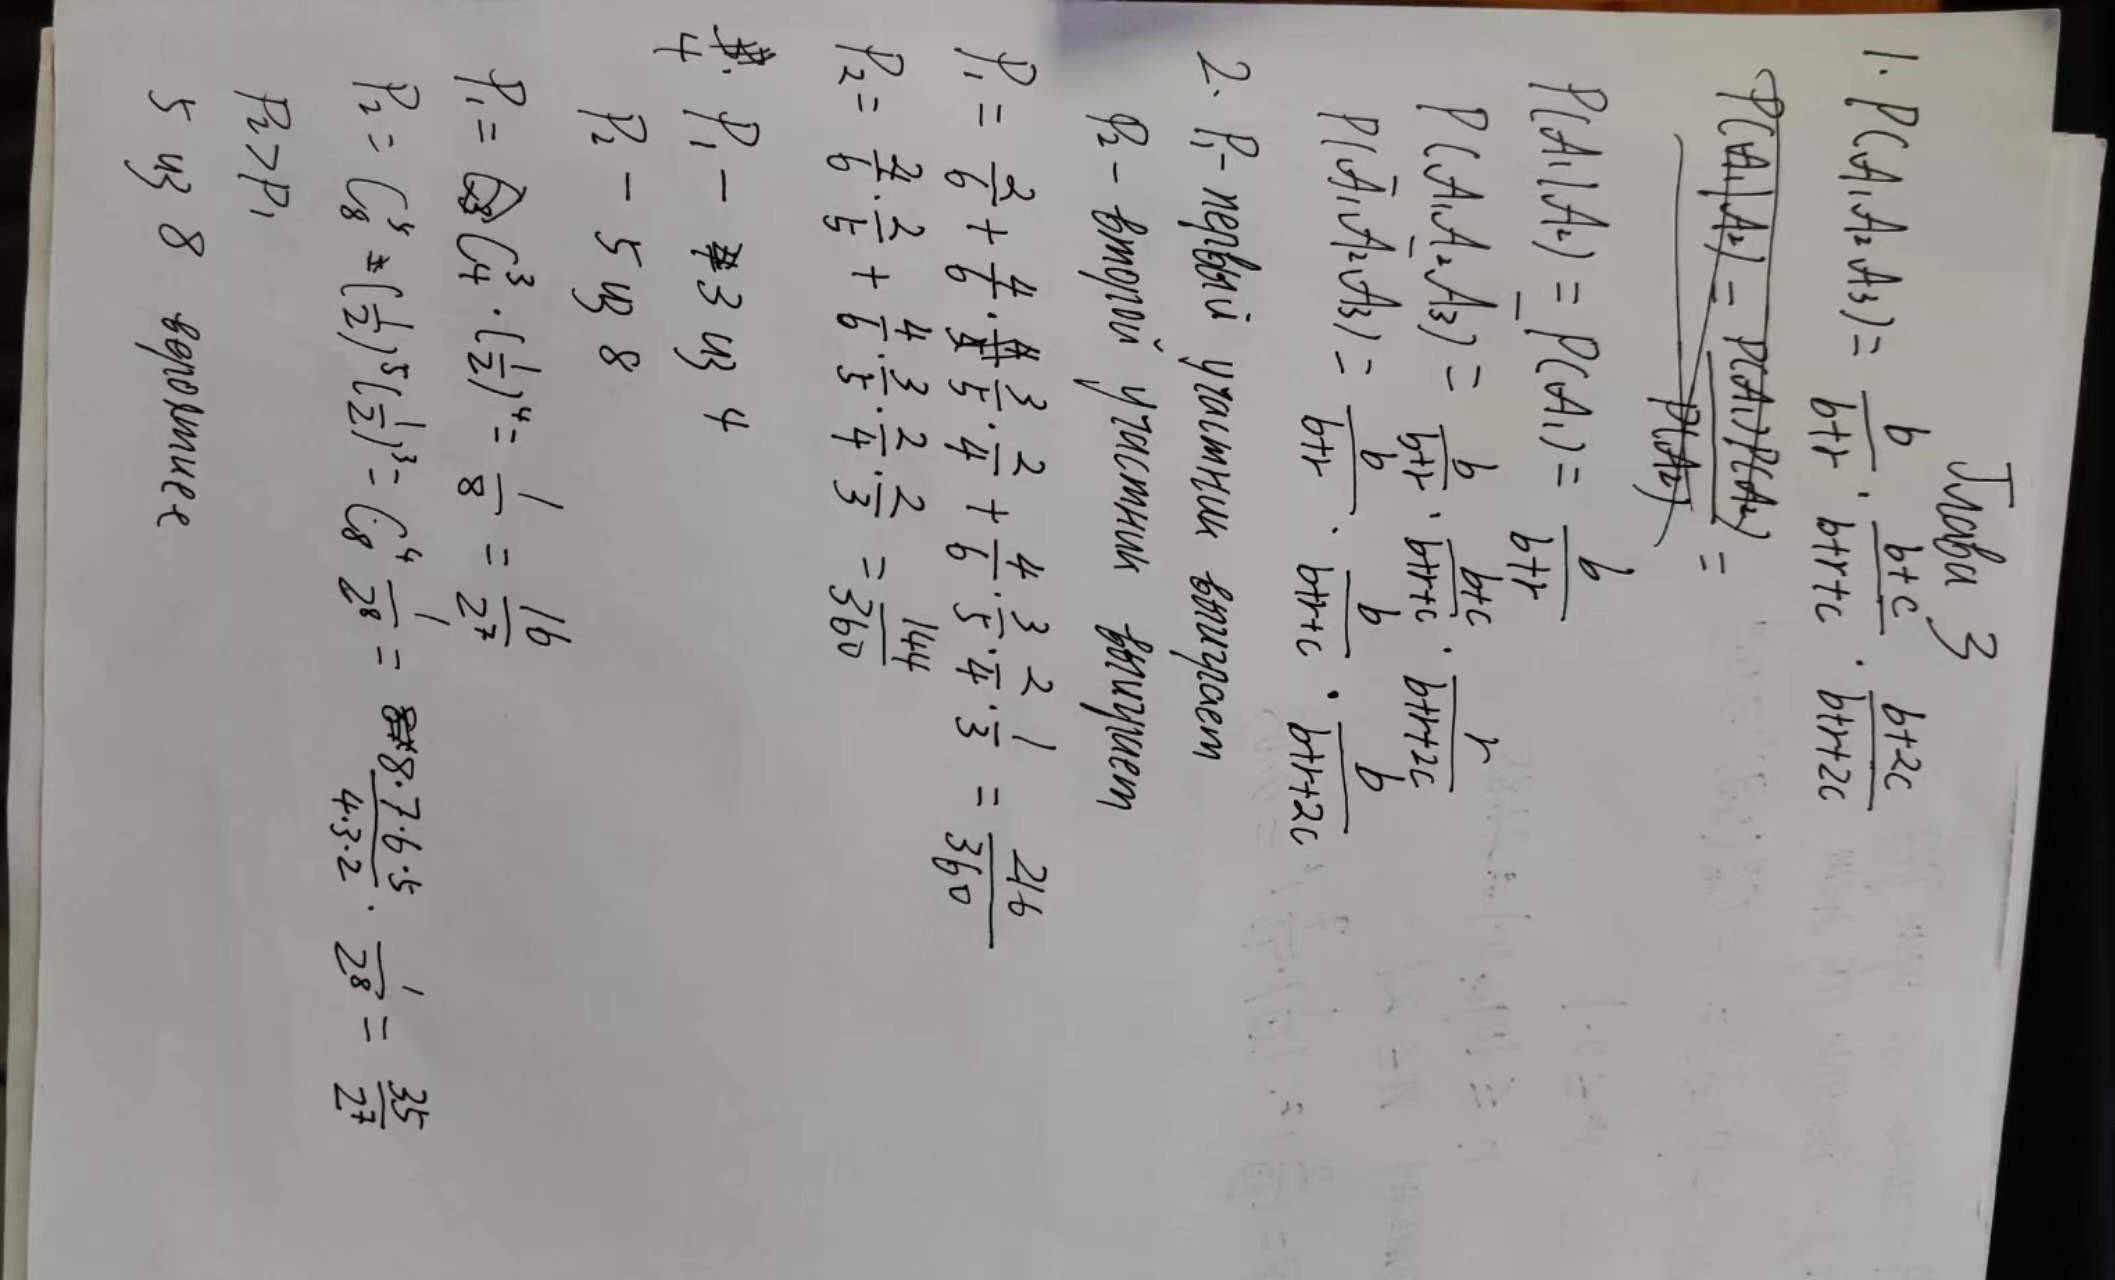 Глава 3
1. P(A₁A₂A₃) = b/(b+r) · (b+c)/(b+r+c) · (b+2c)/(b+r+2c)
P(A₁|A₂) = P(A₁)P(A₂)/P(A₂) =
P(A₁|A₂) = P(A₁) = b/(b+r)
P(A₁A₂A̅₃) = b/(b+r) · (b+c)/(b+r+c) · r/(b+r+2c)
P(A̅₁A̅₂A₃) = b/(b+r) · b/(b+r+c) · b/(b+r+2c)
2. P₁ - первый участник выиграет
P₂ - второй участник выиграет
P₁ = 2/6 + 4/6 · 3/5 · 2/4 + 4/6 · 3/5 · 2/4 · 1/3 = 216/360
P₂ = 4/6 · 2/5 + 4/6 · 3/5 · 2/4 · 2/3 = 144/360
4 P₁ - 3 из 4
P₂ - 5 из 8
P₁ = C₄³ · (1/2)⁴ = 1/8 = 16/2⁷
P₂ = C₈⁵ (1/2)⁵(1/2)³ = C₈⁴ 1/2⁸ = 8·7·6·5/4·3·2 · 1/2⁸ = 35/2⁷
P₂>P₁
5 из 8 вероятнее